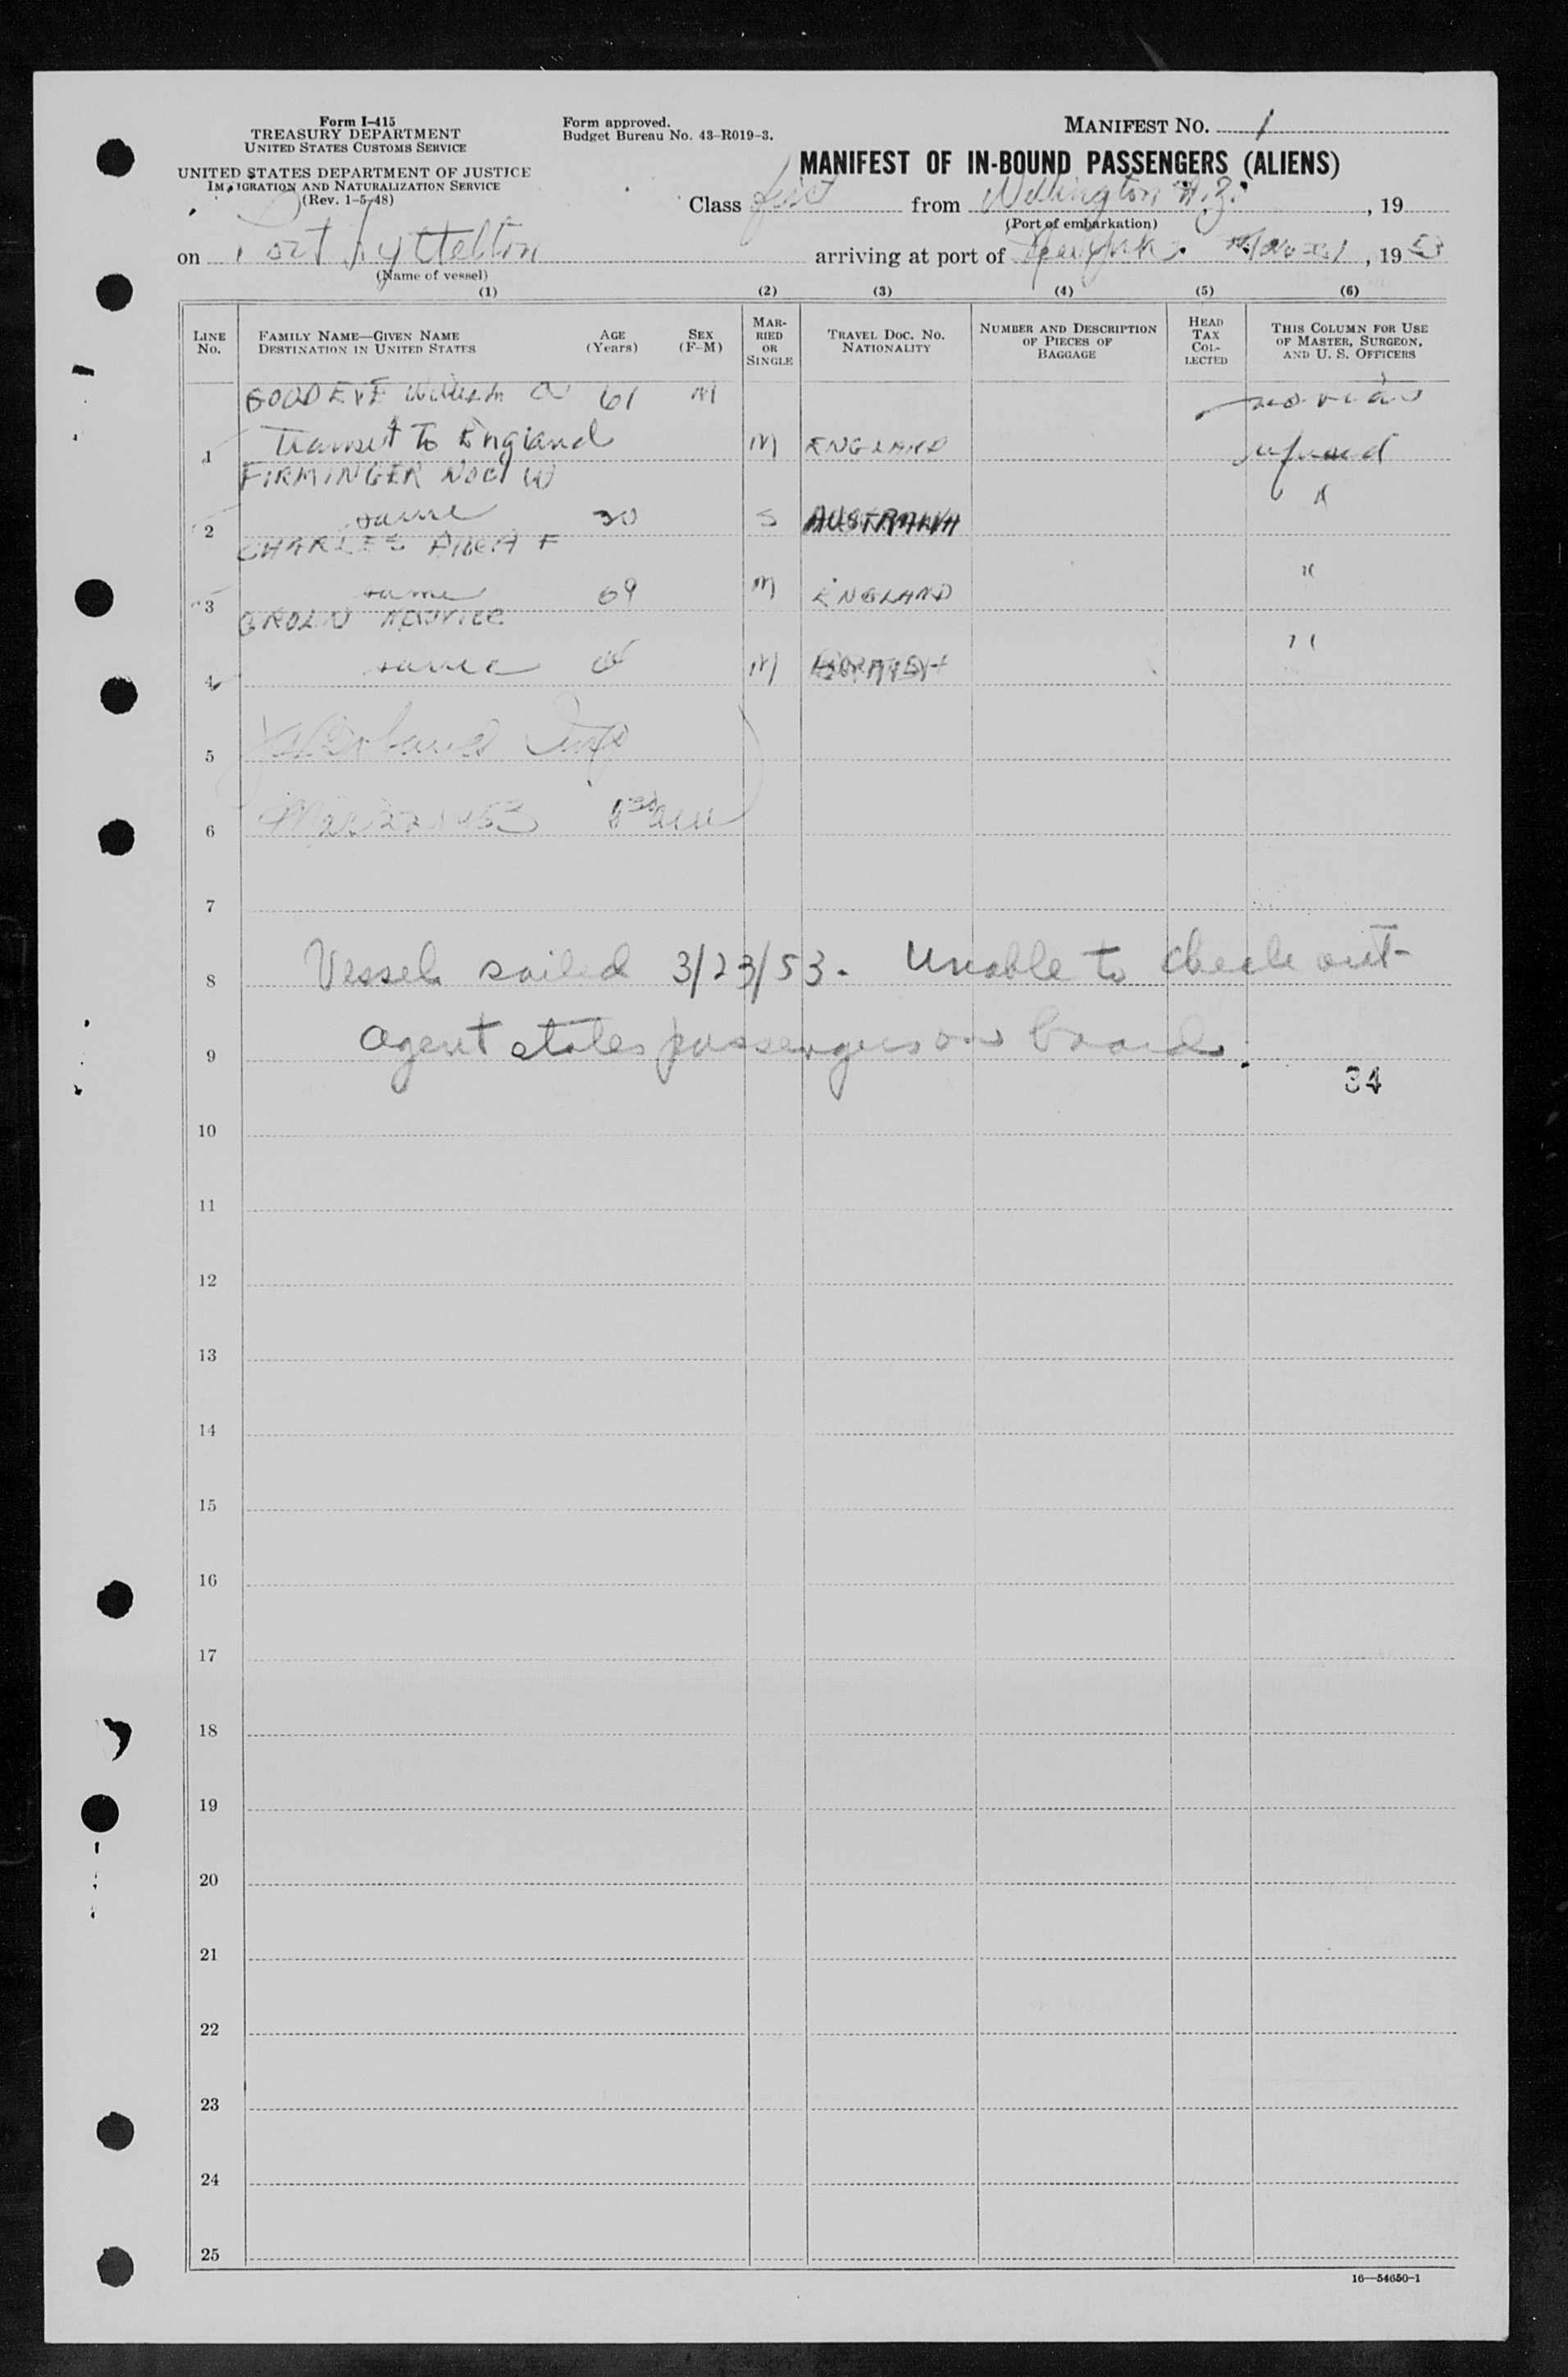 Form I-415
TREASURY DEPARTMENT
UNITED STATES CUSTOMS SERVICE
UNITED STATES DEPARTMENT OF JUSTICE
IMMIGRATION AND NATURALIZATION SERVICE
(Rev. 1-5-48)
Form approved.
Budget Bureau No. 43-R019-3.
MANIFEST NO. 1
MANIFEST OF IN-BOUND PASSENGERS (ALIENS)
Class first from Wellington N.Z. , 19
(Port of embarkation)
on Port Lyttelton arriving at port of New York , 19 53
(Name of vessel)
(1) (2) (3) (4) (5) (6)
LINE No. FAMILY NAME—GIVEN NAME DESTINATION IN UNITED STATES AGE (Years) SEX (F-M) MARRIED OR SINGLE TRAVEL DOC. NO. NATIONALITY NUMBER AND DESCRIPTION OF PIECES OF BAGGAGE HEAD TAX COLLECTED THIS COLUMN FOR USE OF MASTER, SURGEON, AND U. S. OFFICERS
GOODEVE William 61 M
1 Transit To England M ENGLAND
FIRMINGER W "
2 same 30 S AUSTRALIA
CHARLES F "
3 same 69 M ENGLAND
"
4 same M
5
6 Mar 22 1953 8 30 am
7
8 Vessel sailed 3/23/53. Unable to check out-
9 agent states passengers on board.
34
10
11
12
13
14
15
16
17
18
19
20
21
22
23
24
25
16—54650-1